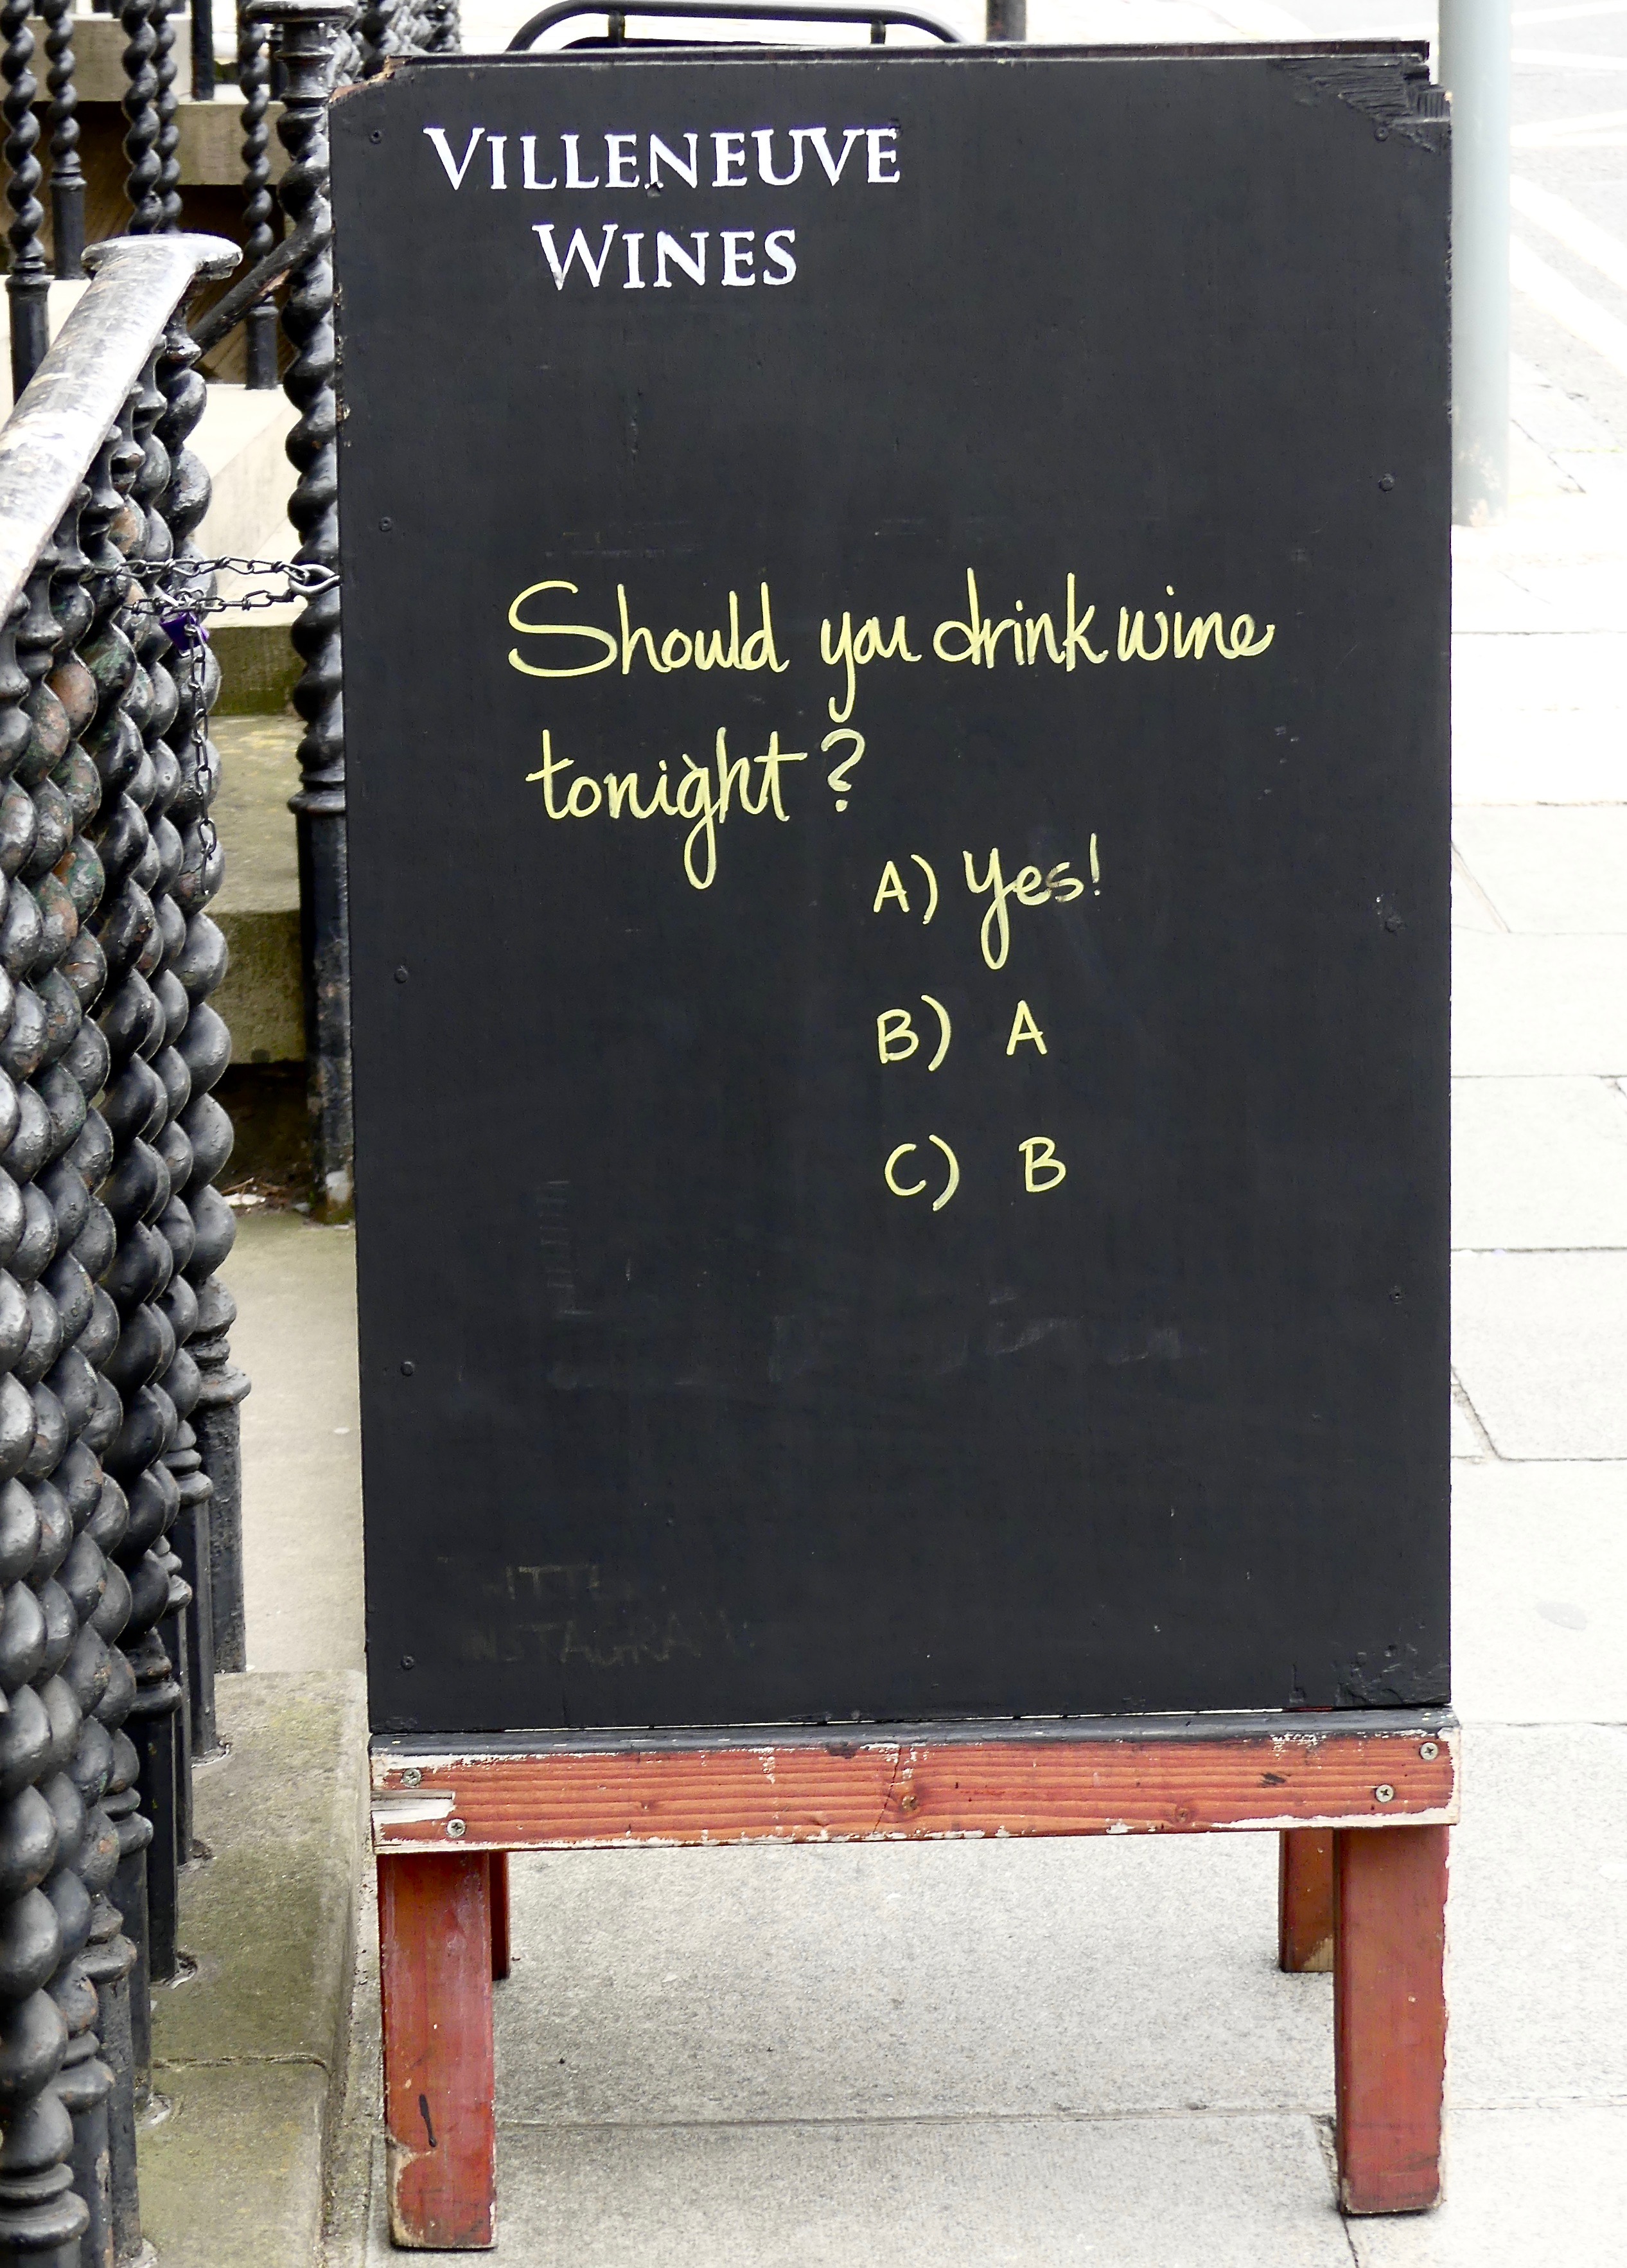 VILLENEUVE
WINES
Should you drink wine
tonight?
A) Yes!
B) A
C) B